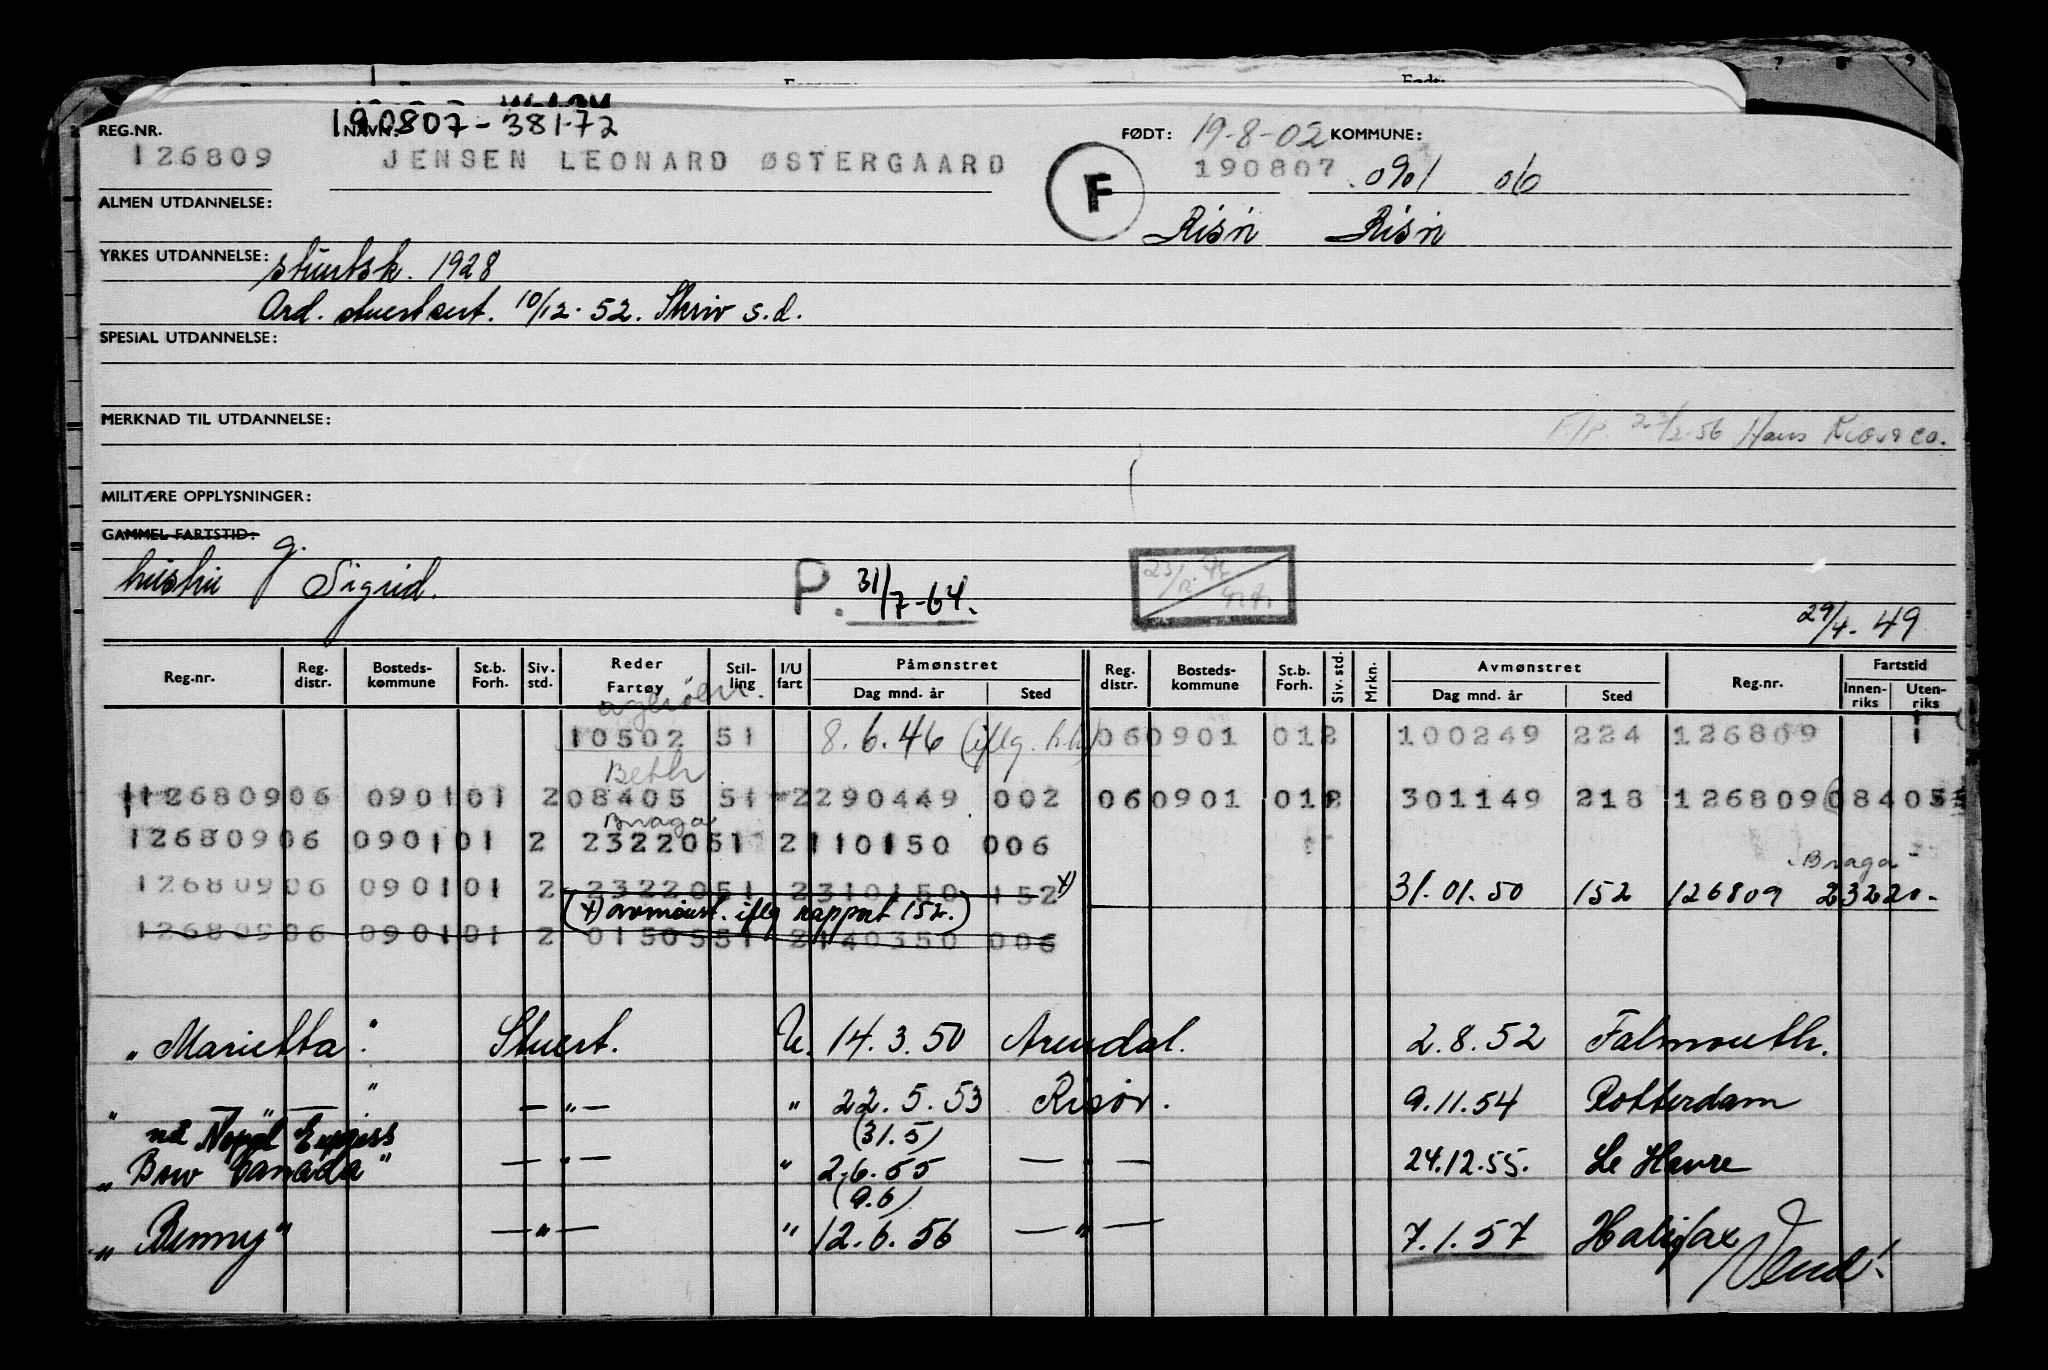 190807-38172
REG.NR. NAVN: FØDT: 19-8-02 KOMMUNE:
126809 JENSEN LEONARD ØSTERGAARD F 190807 0901 06
ALMEN UTDANNELSE: Risør Risør
YRKES UTDANNELSE: stuertsk. 1928
Ord. stuertsert. 10/12-52. Skriv s.d.
SPESIAL UTDANNELSE:
MERKNAD TIL UTDANNELSE: 56 Hans co.
MILITÆRE OPPLYSNINGER:
GAMMEL FARTSTID:
hustru g. Sigrid. P. 31/7-64.
29/4-49
Reg.nr. Reg. distr. Bosteds- kommune St.b. Forh. Siv. std. Reder Fartøy Stil- ling I/U fart Påmønstret Dag mnd. år Sted Reg. distr. Bosteds- kommune St.b. Forh. Siv. std. Mrkn. Avmønstret Dag mnd. år Sted Reg.nr. Fartstid Innen- riks Uten- riks
10502 51 8.6.46 (iflg. h.h) 060901 012 100249 224 126809 1
Beth
126809 06 0901 01 2 08405 51 2 290449 002 060901 012 301149 218 126809 08405
Braga
126809 06 0901 01 2 23220 51 2 110150 006
Braga
126809 06 0901 01 2 23220 51 2 310150 152 x) 31.01.50 152 126809 23220-
(x) avmønst. iflg rapport 152.)
126809 06 0901 01 2 01505 51 2 140350 006
"Marietta" Stuert. U. 14.3.50 Arendal. 2.8.52 Falmouth.
" — " — " — " — " 22.5.53 Risør. 9.11.54 Rotterdam
nå Nopal Express (31.5)
"Bow Canada" — " — " 2.6.55 — " — 24.12.55. Le Havre
(9.6)
"Benny" — " — " 12.6.56 — " — 7.1.57 Halifax
Vend!